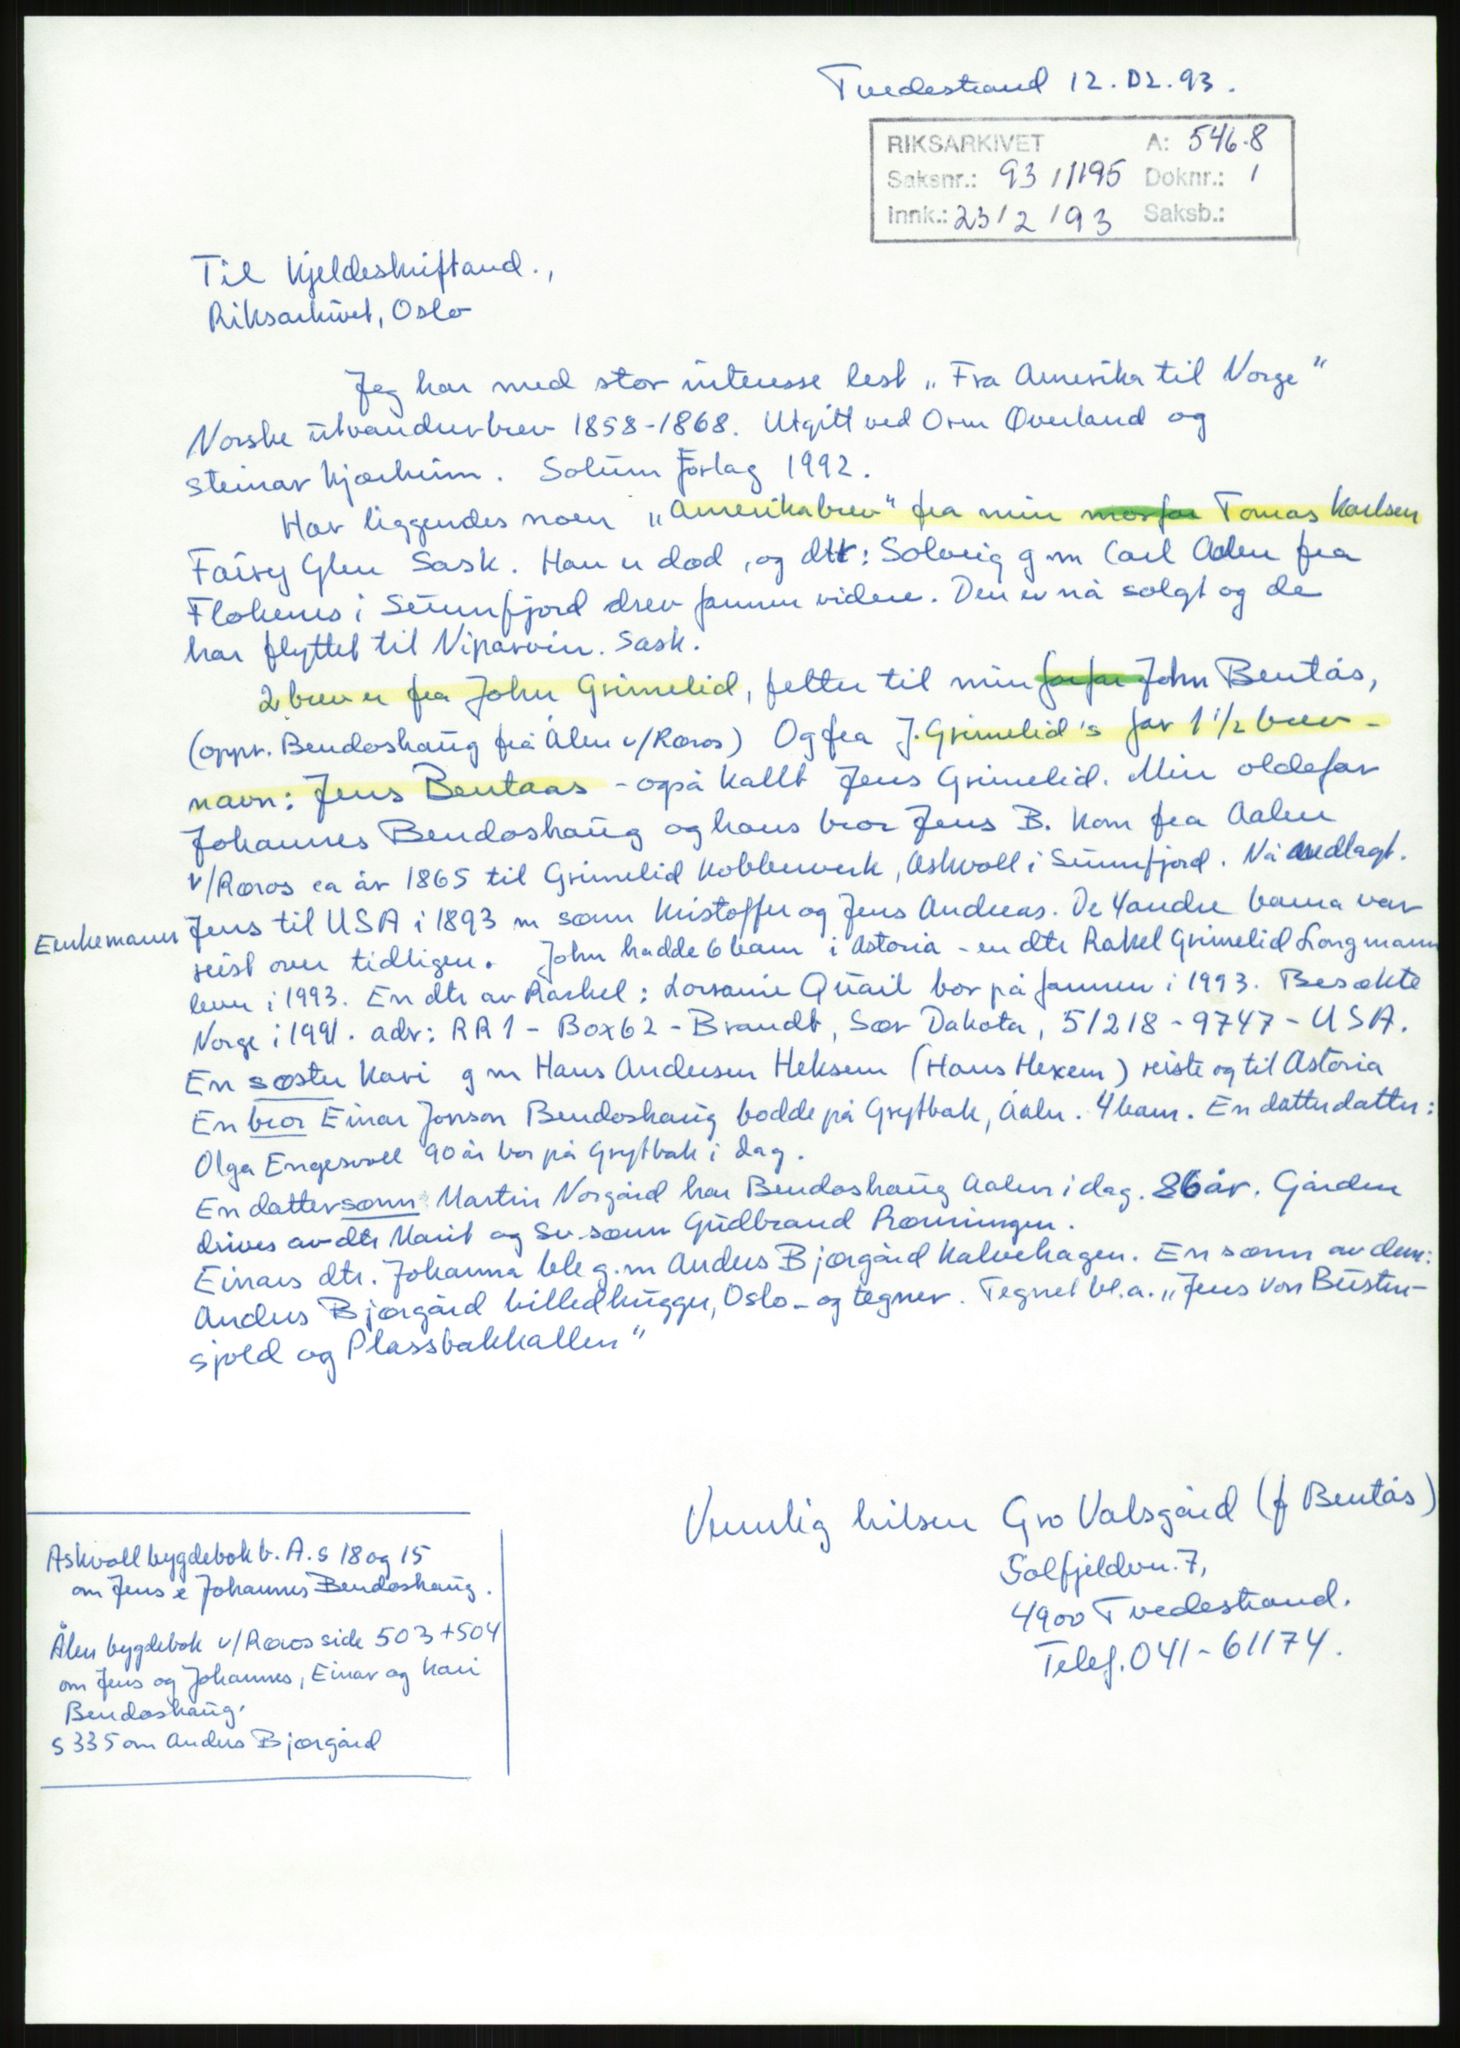 Tvedestrand 12.02.93.
RIKSARKIVET A: 546.8
Saksnr.: 93/1195 Doknr.: 1
Innk.: 23/2/93 Saksb.:
Til Kjeldeskriftavd.,
Riksarkivet, Oslo
Jeg har med stor interesse lest „Fra Amerika til Norge"
Norske utvandrerbrev 1858-1868. Utgitt ved Orm Øverland og
Steinar Kjærheim. Solum Forlag 1992.
Har liggendes noen „Amerikabrev" fra min morfar Tomas Karlsen
Fairy Glen Sask. Han er død, og dtr: Solveig g m Carl Aalen fra
Flokenes i Sunnfjord drev farmen videre. Den er nå solgt og de
har flyttet til Niparvin. Sask.
2 brev er fra John Grimelid, fetter til min farfar John Bentås,
(oppr. Bendoshaug frå Ålen v/Røros) Og fra J. Grimelid's far 1 1/2 brev -
navn: Jens Bentaas - også kallt Jens Grimelid. Min oldefar
Johannes Bendoshaug og hans bror Jens B. kom fra Aalen
v/Røros ca år 1865 til Grimelid Kobberverk, Askvoll i Sunnfjord. Nå nedlagt.
Enkemann Jens til USA i 1893 m sønn Kristoffer og Jens Andreas. De 4 andre barna var
reist over tidligere. John hadde 6 barn i Astoria - en dtr Rakel Grimelid Longmann
lever i 1993. En dtr av Raskel: Lorraine Quail bor på farmen i 1993. Besøkte
Norge i 1991. adr: RR1 - Box 62 - Brandt, Sør Dakota, 51218-9747-USA.
En søster Kari g m Hans Andersen Heksem (Hans Hexem) reiste og til Astoria
En bror Einar Jonson Bendoshaug bodde på Grytbak, Ålen. 4 barn. En datterdatter:
Olga Engesvoll 90 år bor på Grytbak i dag.
En dattersønn: Martin Norgård har Bendoshaug Aalen i dag. 86 år. Gården
drives av dtr Marit og Sv.sønn Gudbrand Rønningen.
Einars dtr. Johanna ble g.m Anders Bjørgård Kalvehagen. En sønn av dem:
Anders Bjørgård billedhugger, Oslo - og tegner. Tegnet bl.a. „Jens von Busten-
sjold og Plassbakkallen"
Vennlig hilsen Gro Valsgård (f Bentås)
Solfjeldvn. 7,
4900 Tvedestrand.
Telef. 041-61174.
Askvoll bygdebok b. A. s 18 og 15
om Jens & Johannes Bendoshaug.
Ålen bygdebok v/Røros side 503+504
om Jens og Johannes, Einar og Kari
Bendoshaug.
s 335 om Anders Bjørgård